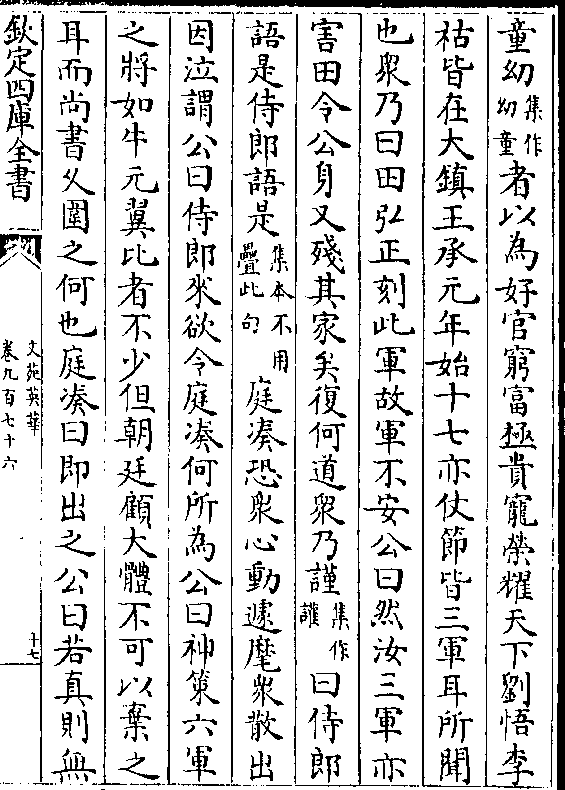 童幼集作幼童者以為好官窮富極貴寵榮耀天下劉悟李
祜皆在大鎮王承元年始十七亦仗節皆三軍耳所聞
也衆乃曰田弘正刻此軍故軍不安公曰然汝三軍亦
害田令公身又殘其家矣復何道衆乃謹集作讙曰侍郎
語是侍郎語是集本不用疊此句庭湊恐衆心動遽麾衆散出
因泣謂公曰侍郎來欲令庭湊何所為公曰神策六軍
之將如牛元翼比者不少但朝廷顧大體不可以棄之
耳而尚書乆圍之何也庭湊曰即出之公曰若真則無
欽定四庫全書
文苑英華
卷九百七十六
十七